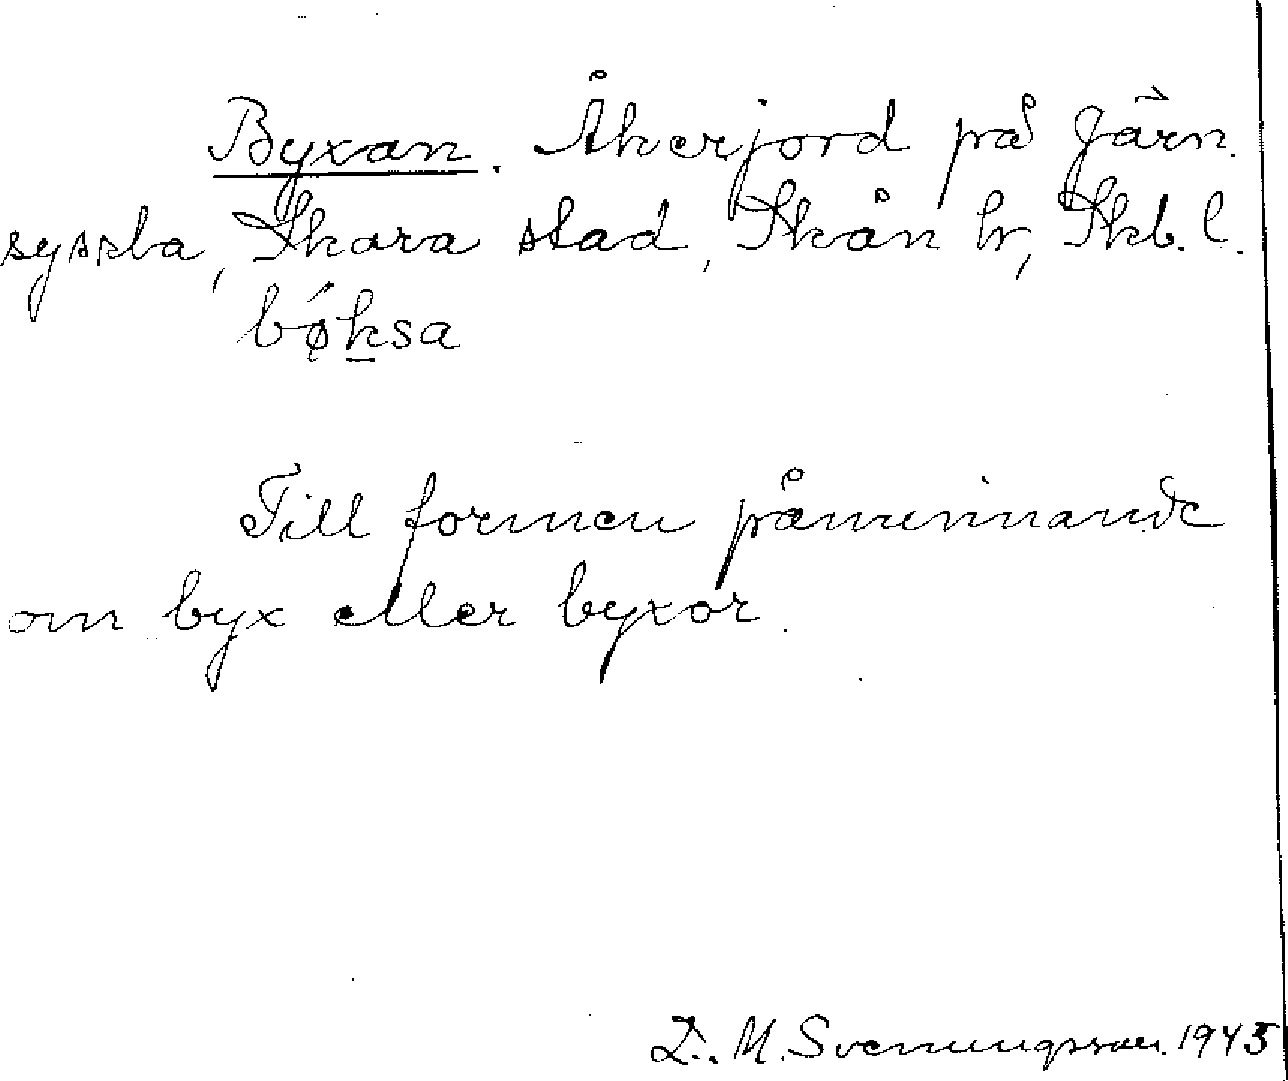 Byxan. Åkerjord på Järn.
syssla, Skara stad, Skån hr, Skb. l.
bǿksa
Till formen påminnande
om byx eller byxor.
M. Svenungsson. 1945